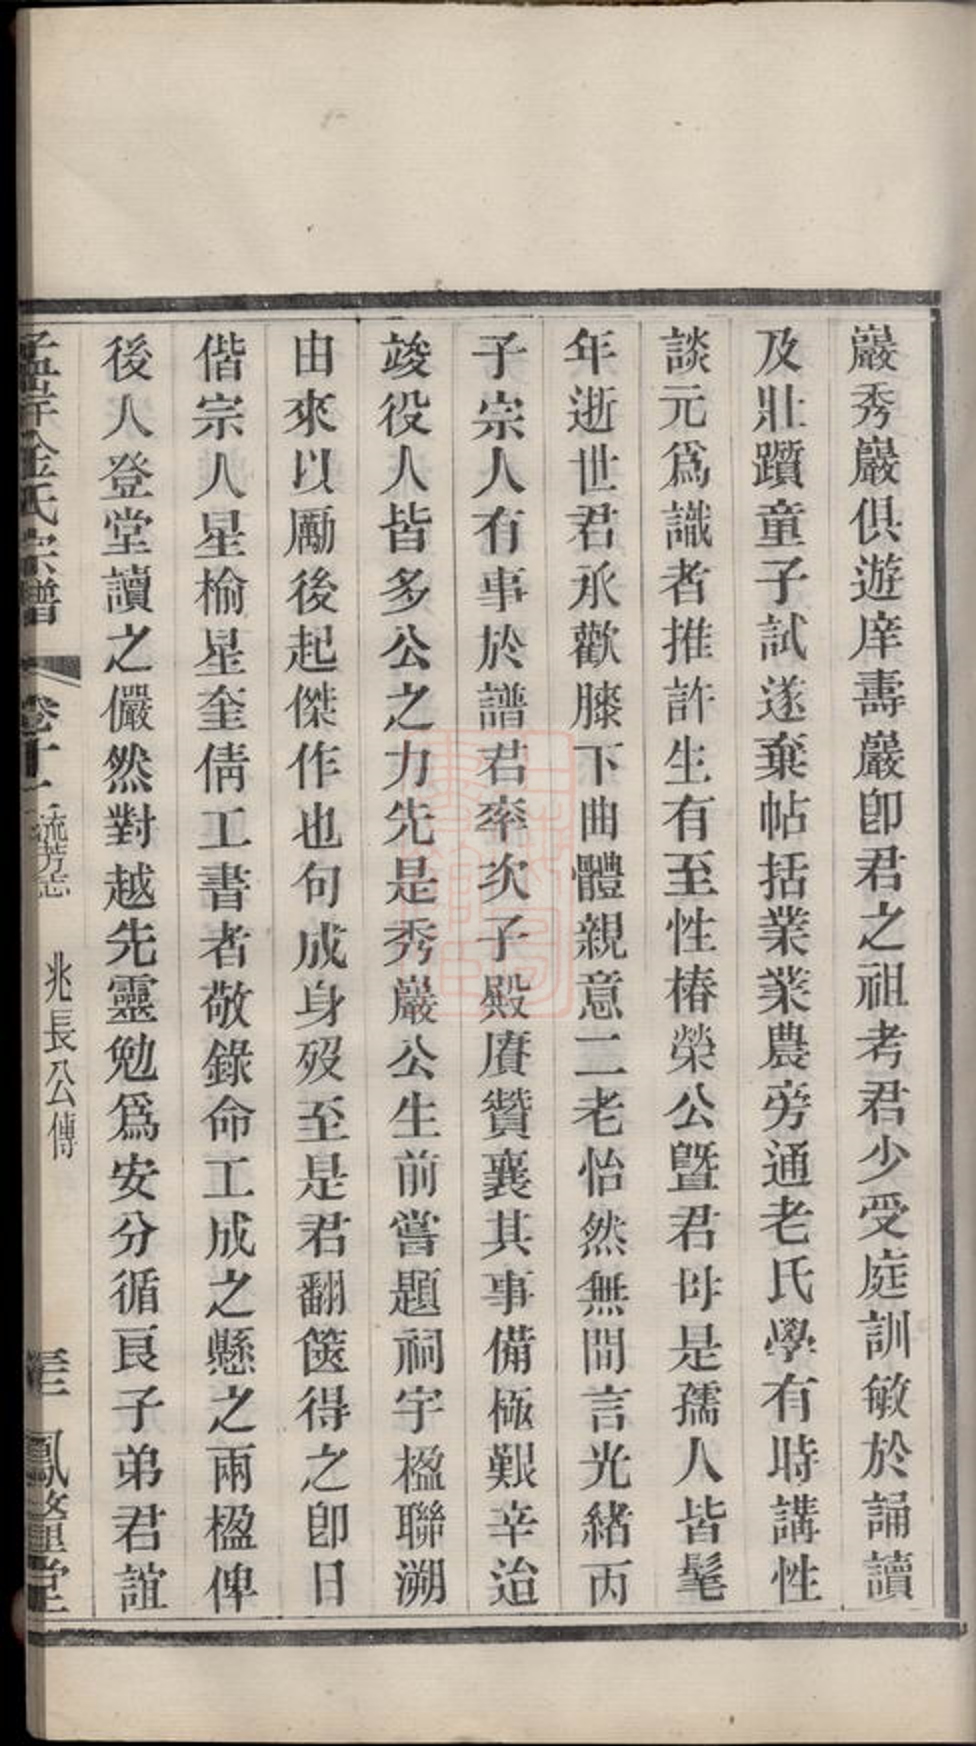 巖秀巖俱遊庠壽巖卽君之祖考君少受庭訓敏於誦讀
及壯躓童子試遂棄帖括業業農旁通老氏學有時講性
談元爲識者推許生有至性椿榮公曁君母是孺人皆髦
年逝世君承歡膝下曲體親意二老怡然無間言光緖丙
子宗人有事於譜君率次子殿賡贊襄其事備極艱辛迨
竣役人皆多公之力先是秀巖公生前嘗題祠宇楹聯溯
由來以勵後起傑作也句成身歿至是君翻篋得之卽日
偕宗人星楡星奎倩工書者敬錄命工成之懸之兩楹俾
後人登堂讀之儼然對越先靈勉爲安分循良子弟君誼
金氏宗譜 卷十一 流芳志 兆長公傳 堂